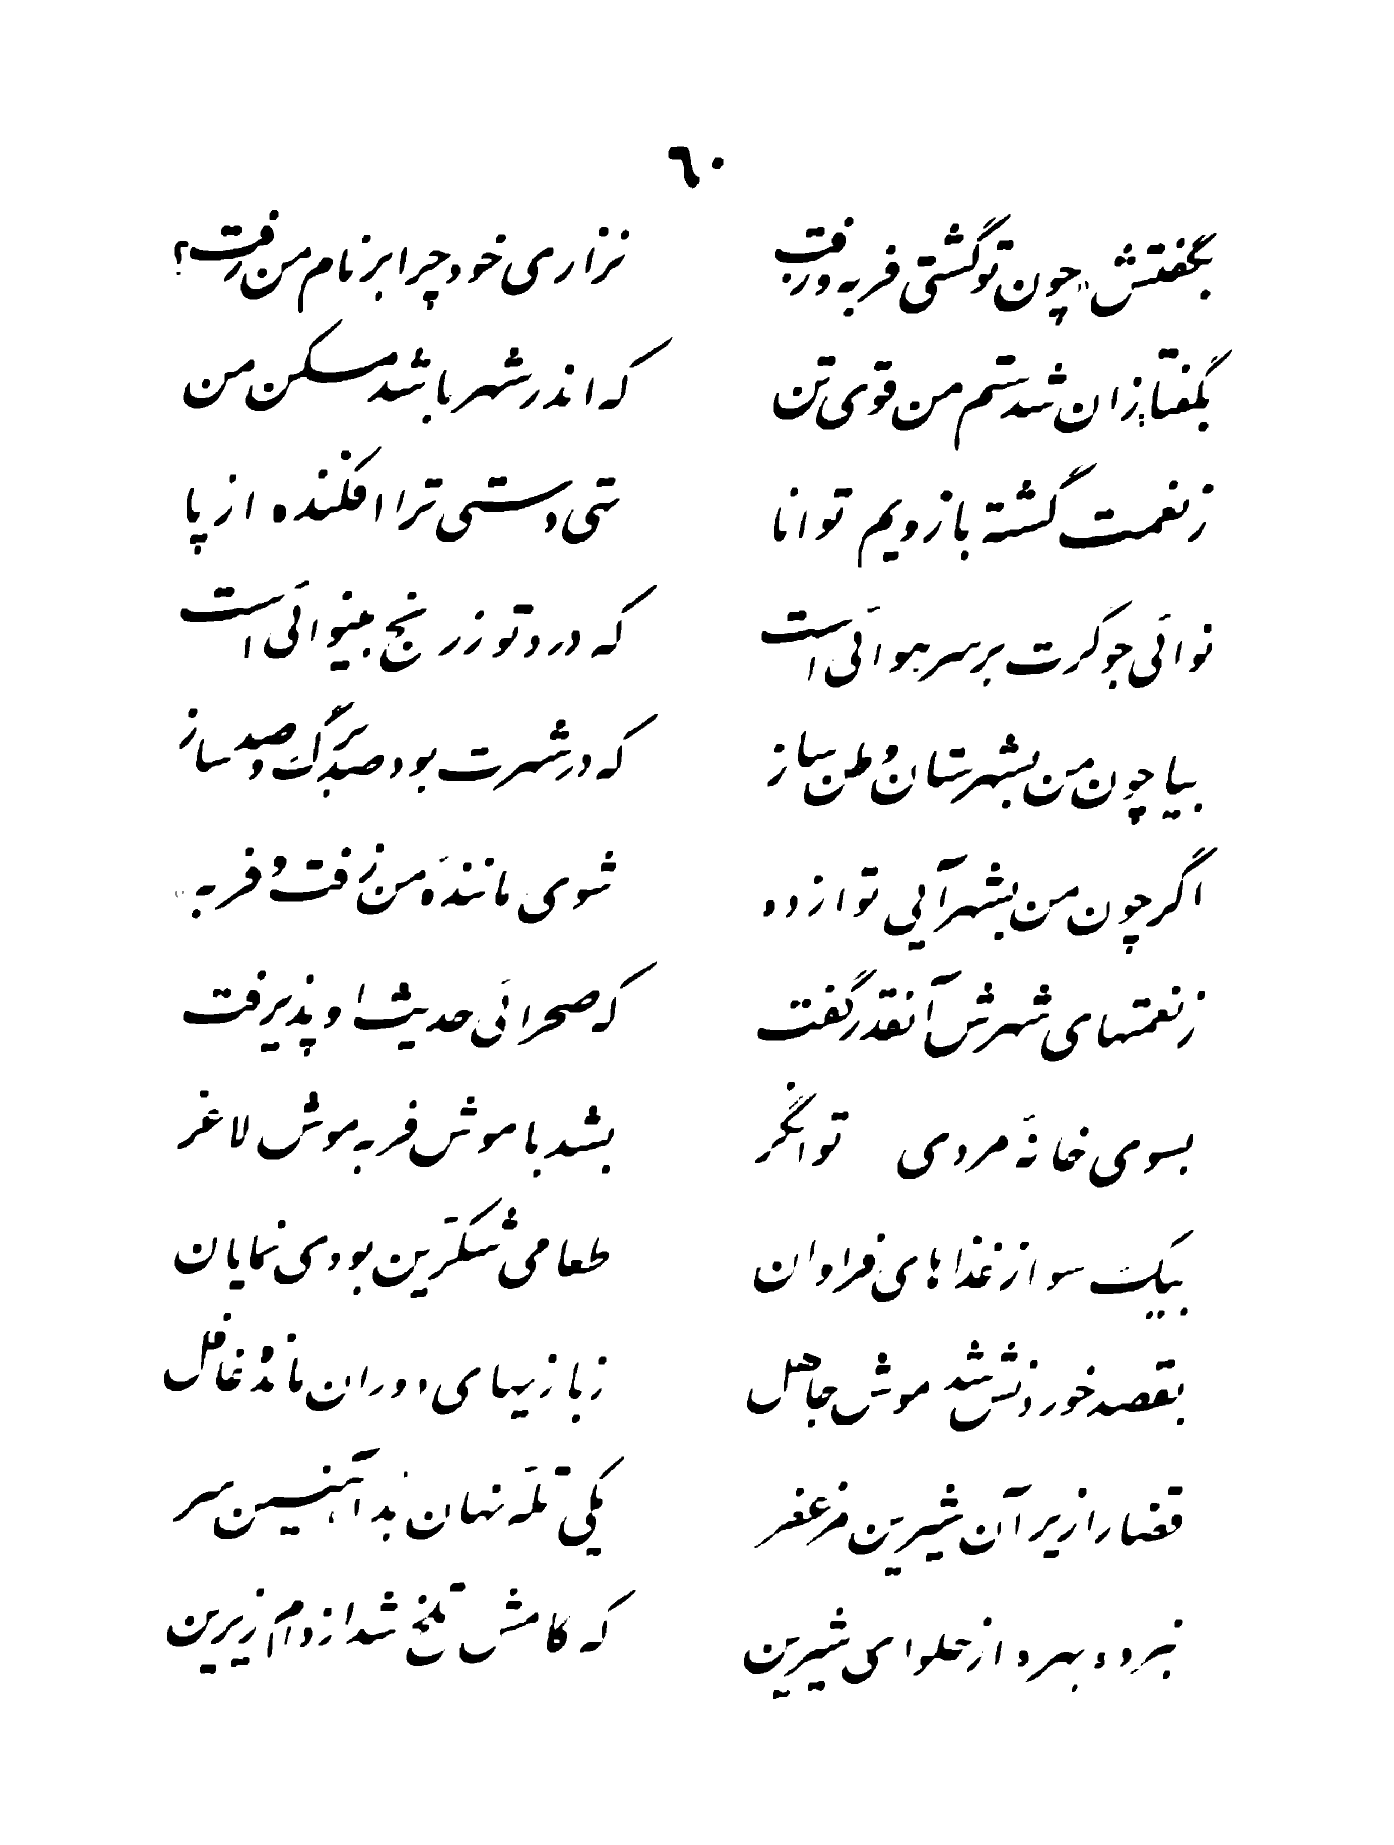 ٦٠
بگفتش «چون تو گشتی فربه و زفت نزاری خود چرا بر نام من رفت؟
بگفتا زان شدستم من قوی تن که اندر شهر باشد مسکن من
ز نعمت گشته بازویم توانا تهی دستی ترا افکنده از پا
نوائی جو کرت بر سر هوائی است که درد تو ز رنج بینوائی است
بیا چون من بشهرستان وطن ساز که در شهرت بود صد برگ و صد ساز
اگر چون من بشهر آیی تو از ده شوی مانندهٔ من زفت و فربه»
ز نعمتهای شهرش آنقدر گفت که صحرائی حدیث او پذیرفت
بسوی خانهٔ مردی توانگر بشد با موش فربه موش لاغر
بیک سو از غذاهای فراوان طعامی شکرین بودی نمایان
بقصد خوردنش شد موش جاهل ز بازیهای دوران مانده غافل
قضا را زیر آن شیرین مزعفر یکی تله نهان بد آهنین سر
نبرده بهره از حلوای شیرین که کامش تلخ شد از دام زیرین